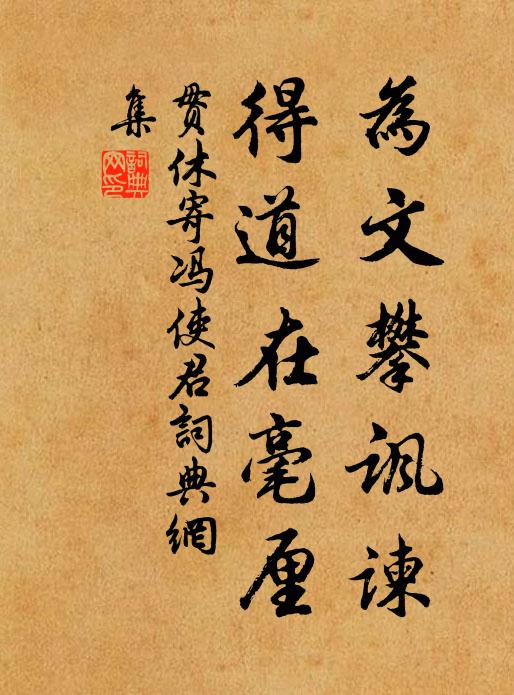 為文攀諷諫
得道在毫厘
貫休寄冯使君詞典網
集
詞典
网印